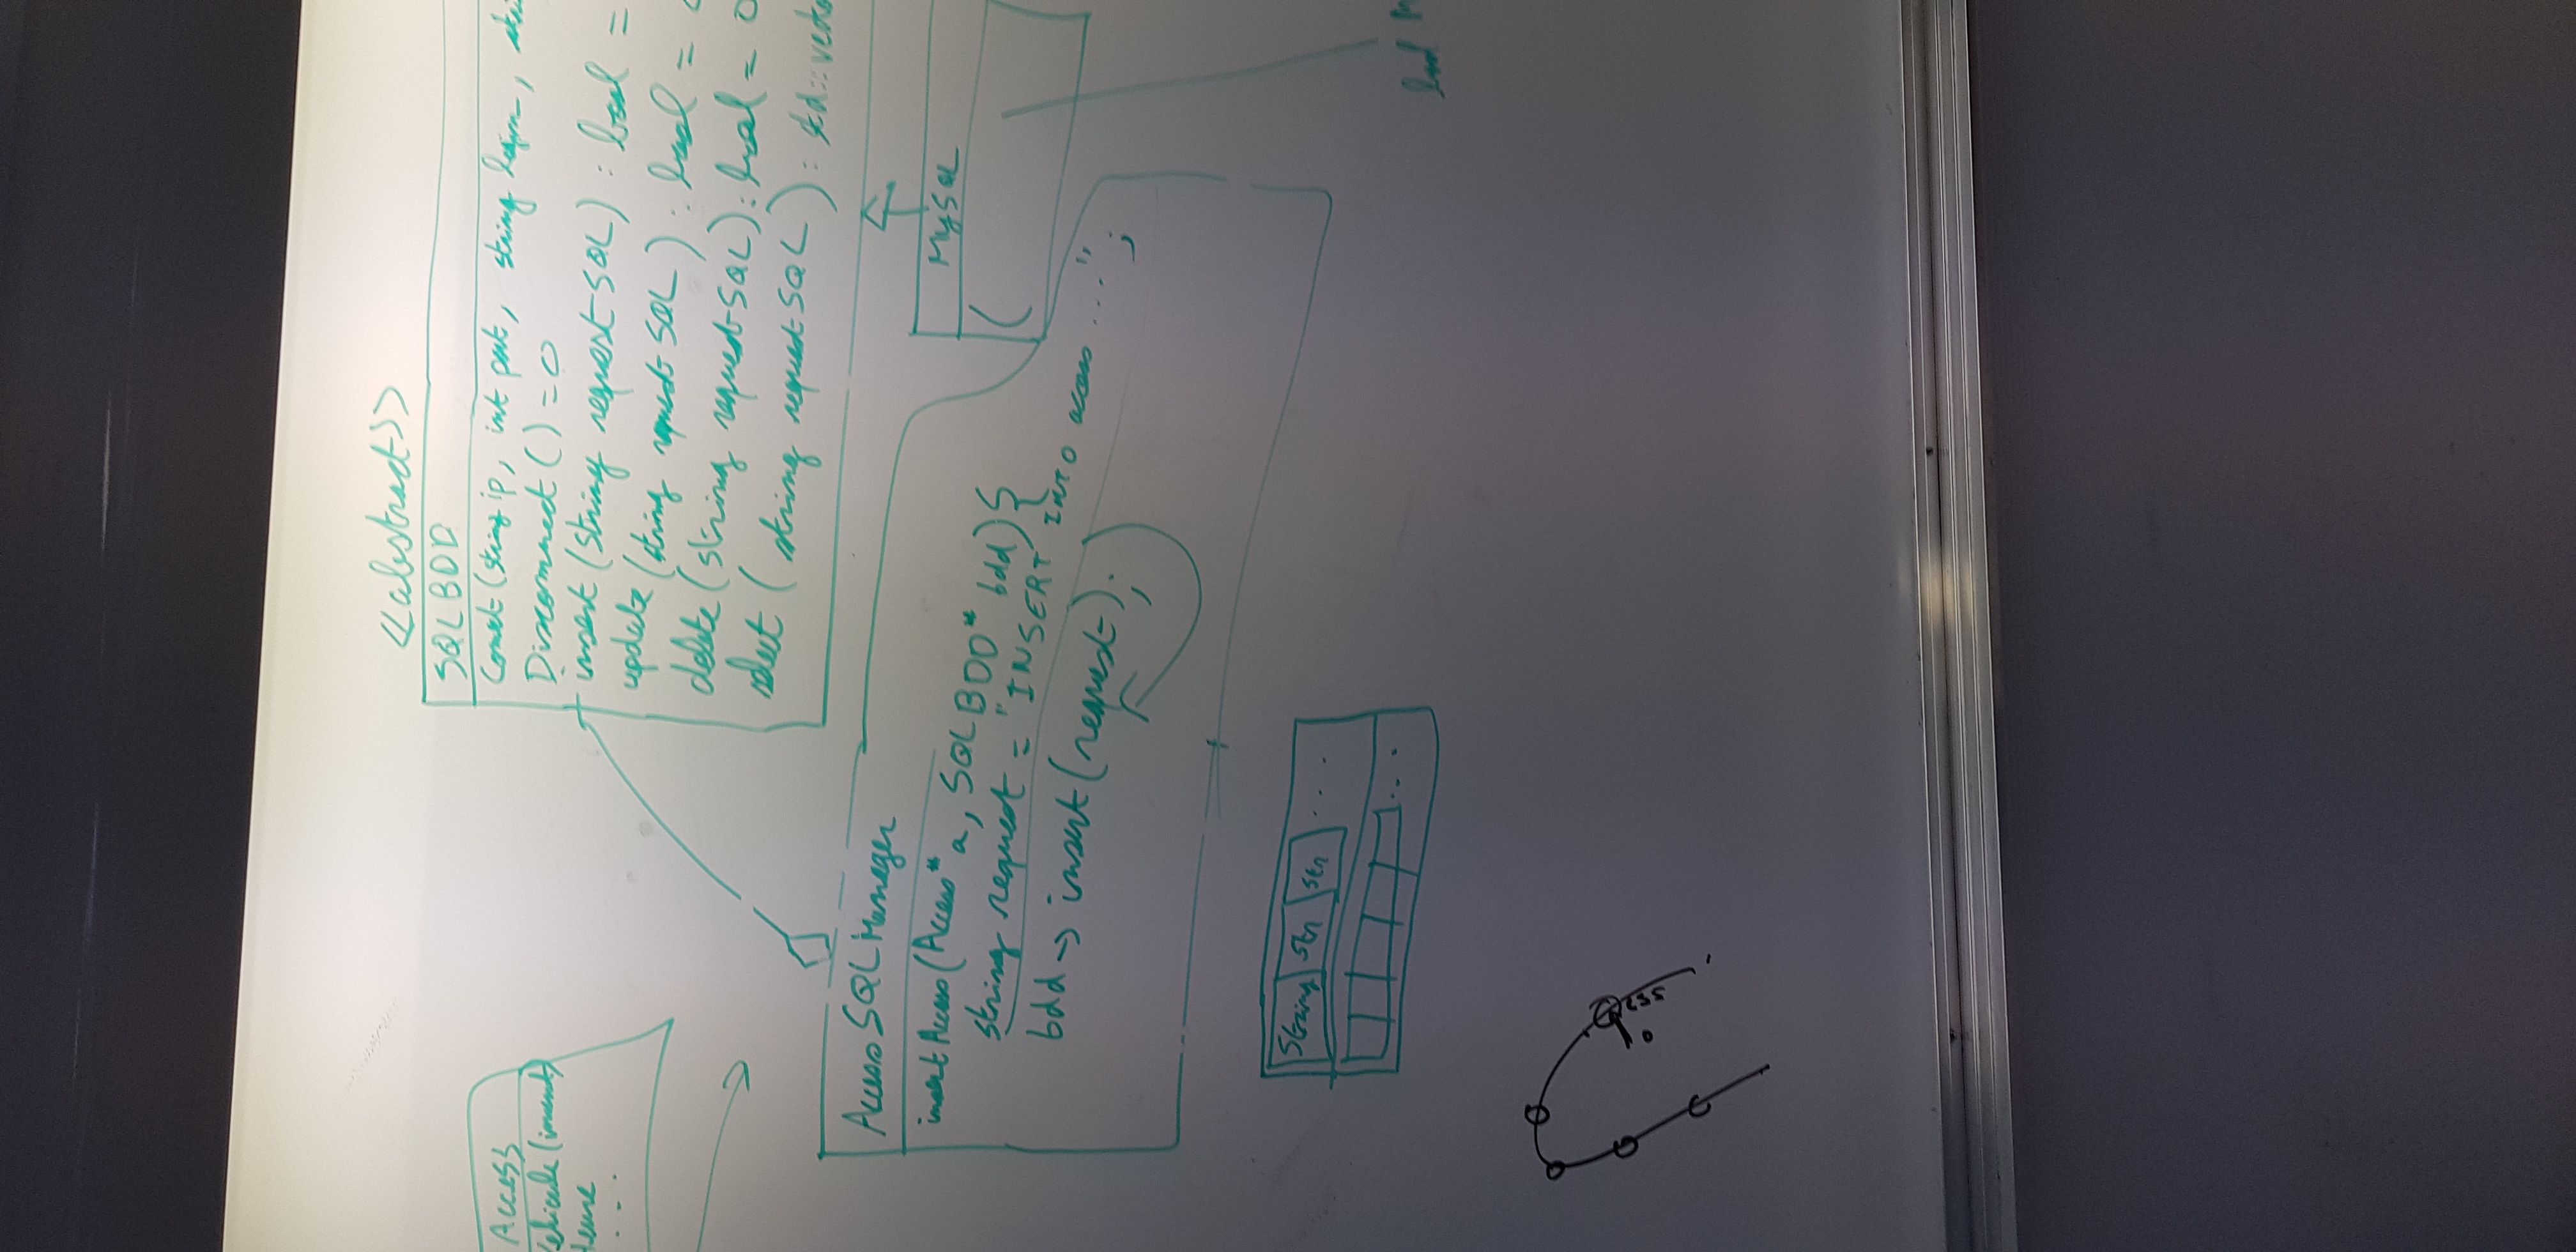 <<abstract>>
SQLBDD
Connect (string ip, int port, string login,
Disconnect () = 0
insert (string requestSQL) : bool =
update (string requestSQL) : bool =
delete (string requestSQL) : bool = 0
select (string requestSQL) : std::vecto
Access
Vehicule (immat)
Heure
...
AccessSQLManager
insertAccess (Access* a, SQLBDD* bdd) {
string request = "INSERT INTO access ...";
bdd -> insert (request);
MySQL
(
String Str Str ...
...
bool M
0 255